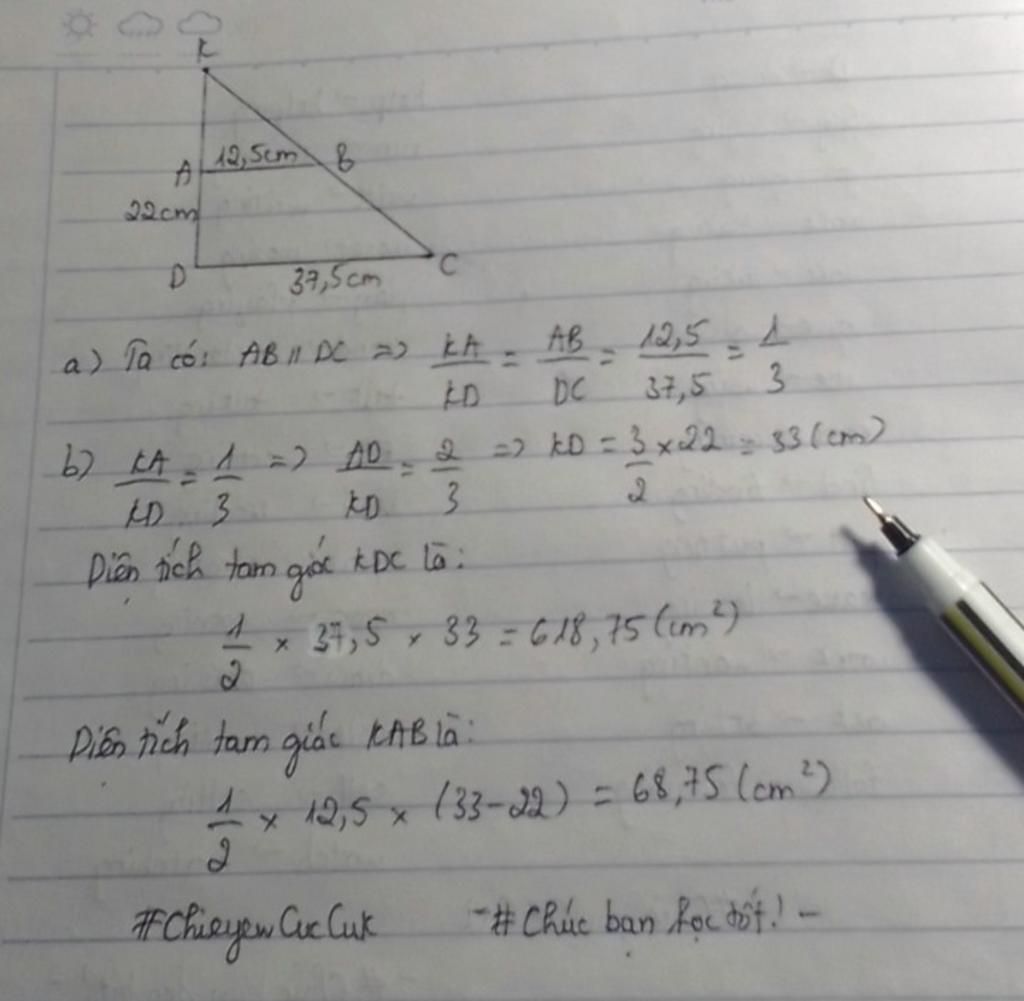 K
A 12,5cm B
22cm
D 37,5cm C
a) Ta có: AB // DC => KA/KD = AB/DC = 12,5/37,5 = 1/3
b) KA/KD = 1/3 => AD/KD = 2/3 => KD = 3/2 × 22 = 33 (cm)
Diện tích tam giác KDC là:
1/2 × 37,5 × 33 = 618,75 (cm²)
Diện tích tam giác KAB là:
1/2 × 12,5 × (33-22) = 68,75 (cm²)
-# Chúc bạn học tốt! -